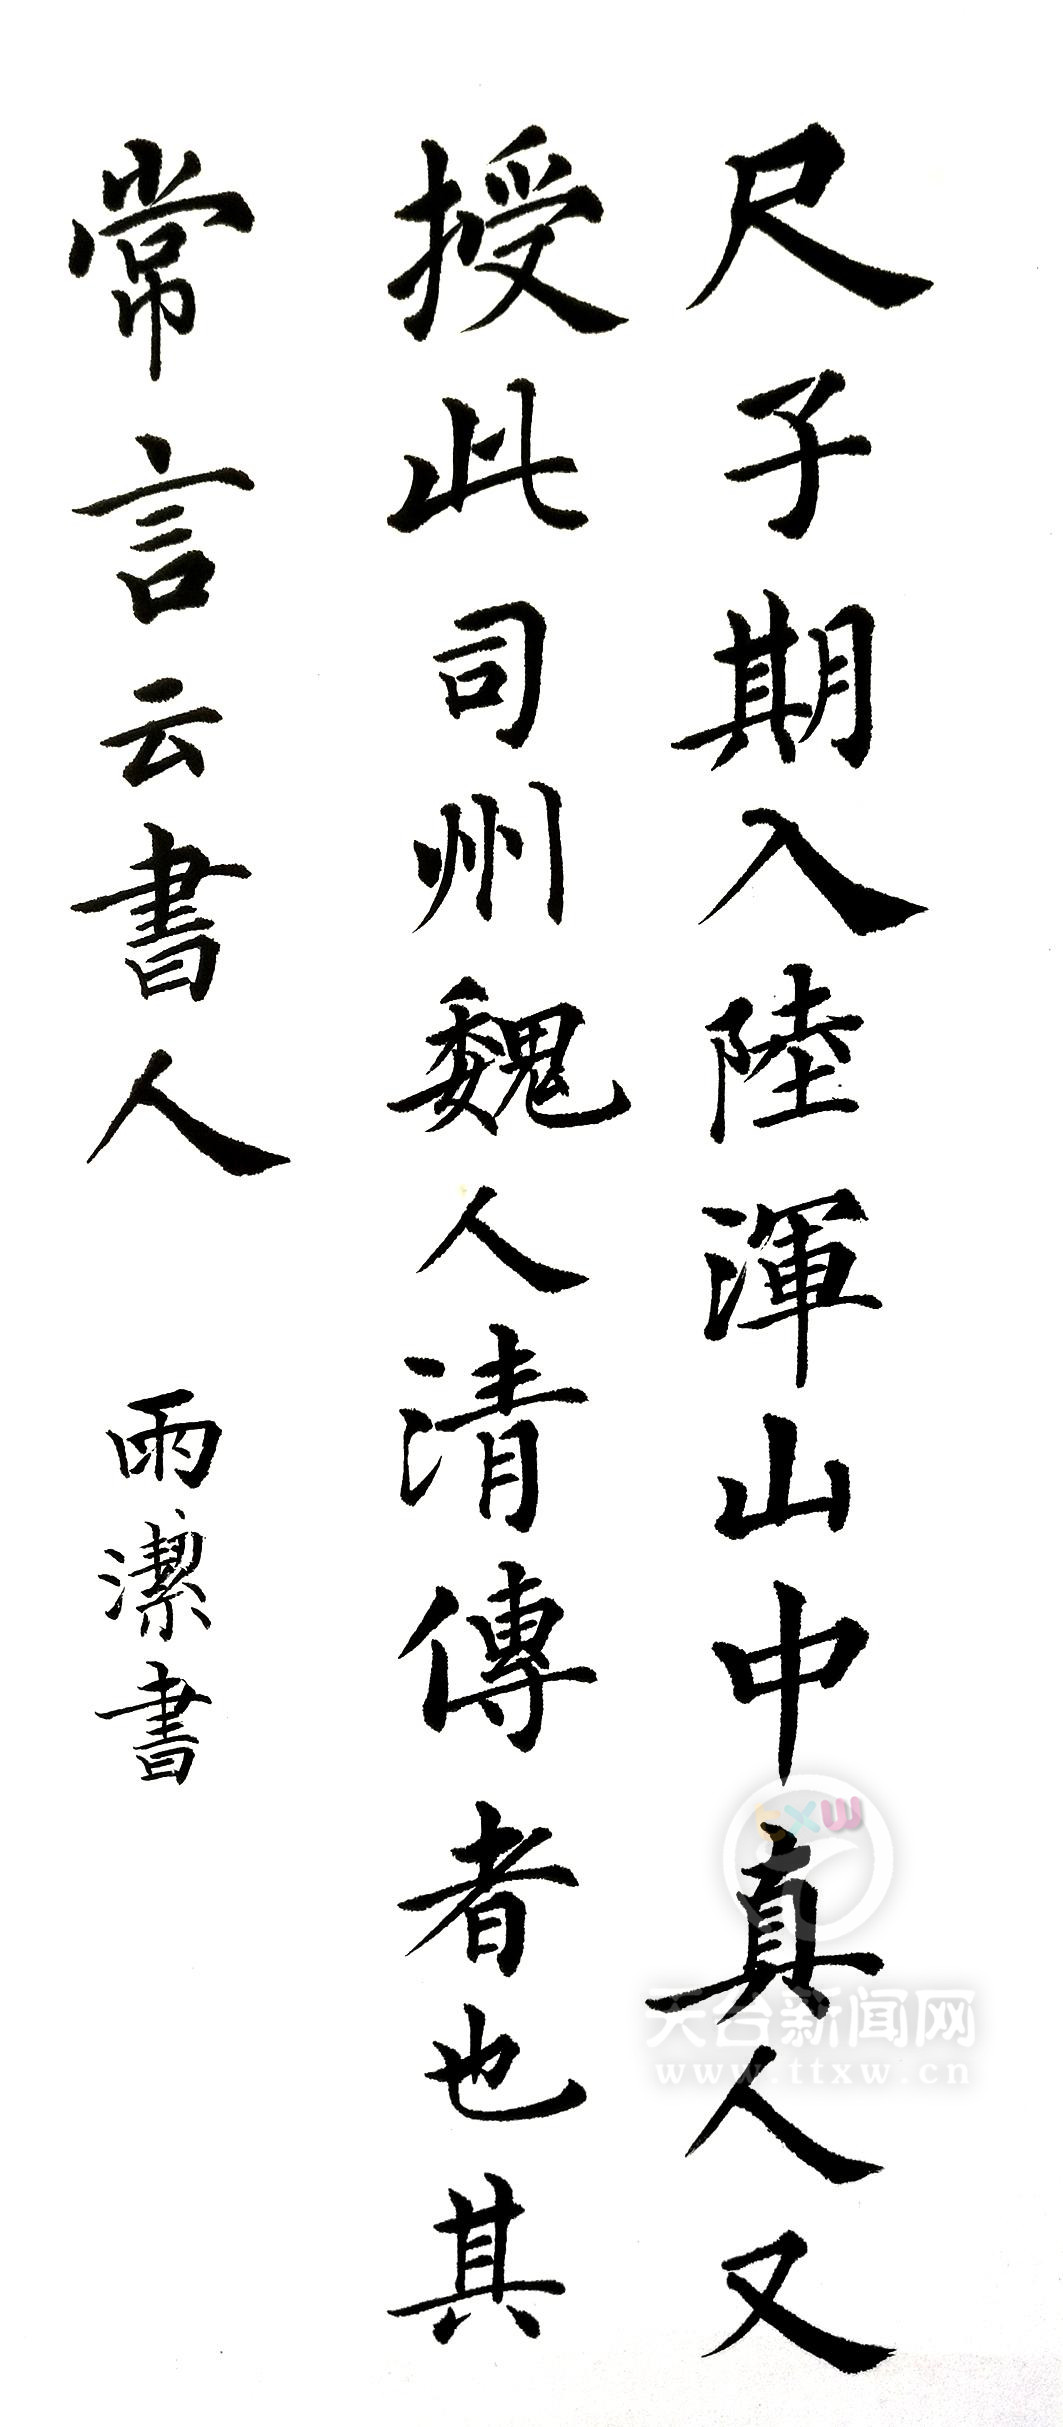 尺子期入陸渾山中真人又
授此司州魏人清傳者也其
常言云書人
雨潔書
txw
天台新闻网
www.ttxw.cn